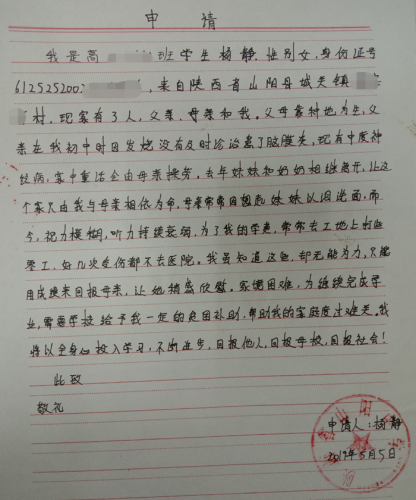 申 请
我是高 班学生杨静，性别女，身份证号
612525200 ，来自陕西省山阳县城关镇
村，现家有3人，父亲、母亲和我。父母靠种地为生，父
亲在我初中时因发烧没有及时诊治患了脑膜炎，现有中度神
经病，家中重活全由母亲操劳，去年妹妹和奶奶相继离开，让这
个家只由我与母亲相依为命，母亲常常因想起妹妹以泪洗面，而
今，视力模糊，听力持续衰弱，为了我的学费，常常去工地上打些
零工，好几次受伤都不去医院。我虽知道这些，却无能为力，只能
用成绩来回报母亲，让她稍感欣慰。家境困难，为继续完成学
业，需要学校给予我一定的贫困补助，帮助我的家庭度过难关。我
将以全身心投入学习，不断进步，回报他人，回报母校，回报社会！
此致
敬礼
申请人：杨静
5月5日